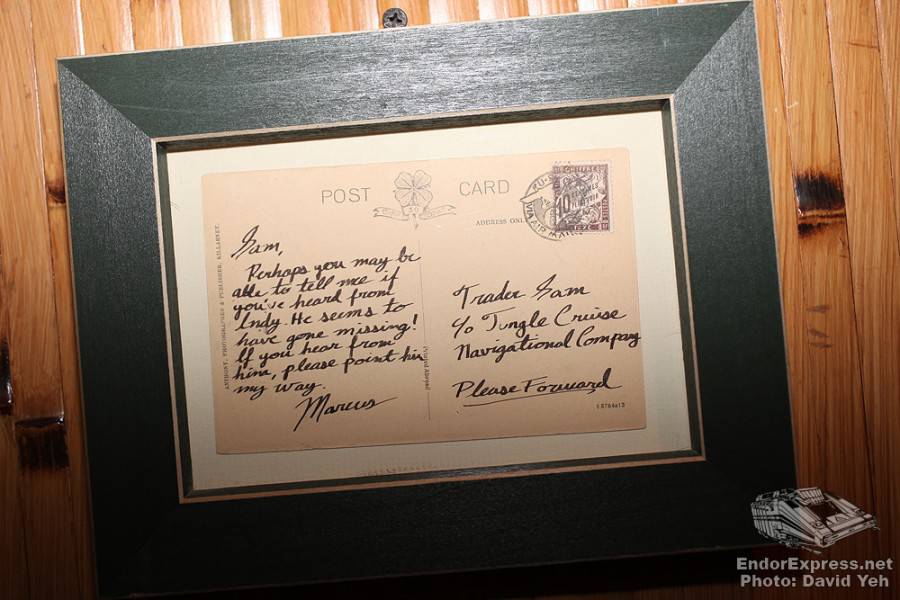 POST CARD
ADDRESS ONLY
VIA AIR MAIL
CHIFFRES
10
ANTHONY, PHOTOGRAPHER & PUBLISHER, KILLARNEY.
Sam,
Perhaps you may be
able to tell me if
you've heard from
Indy. He seems to
have gone missing!
If you hear from
him, please point him
my way.
Marcus
Printed Abroad
Trader Sam
c/o Jungle Cruise
Navigational Company
Please Forward
EndorExpress.net
Photo: David Yeh